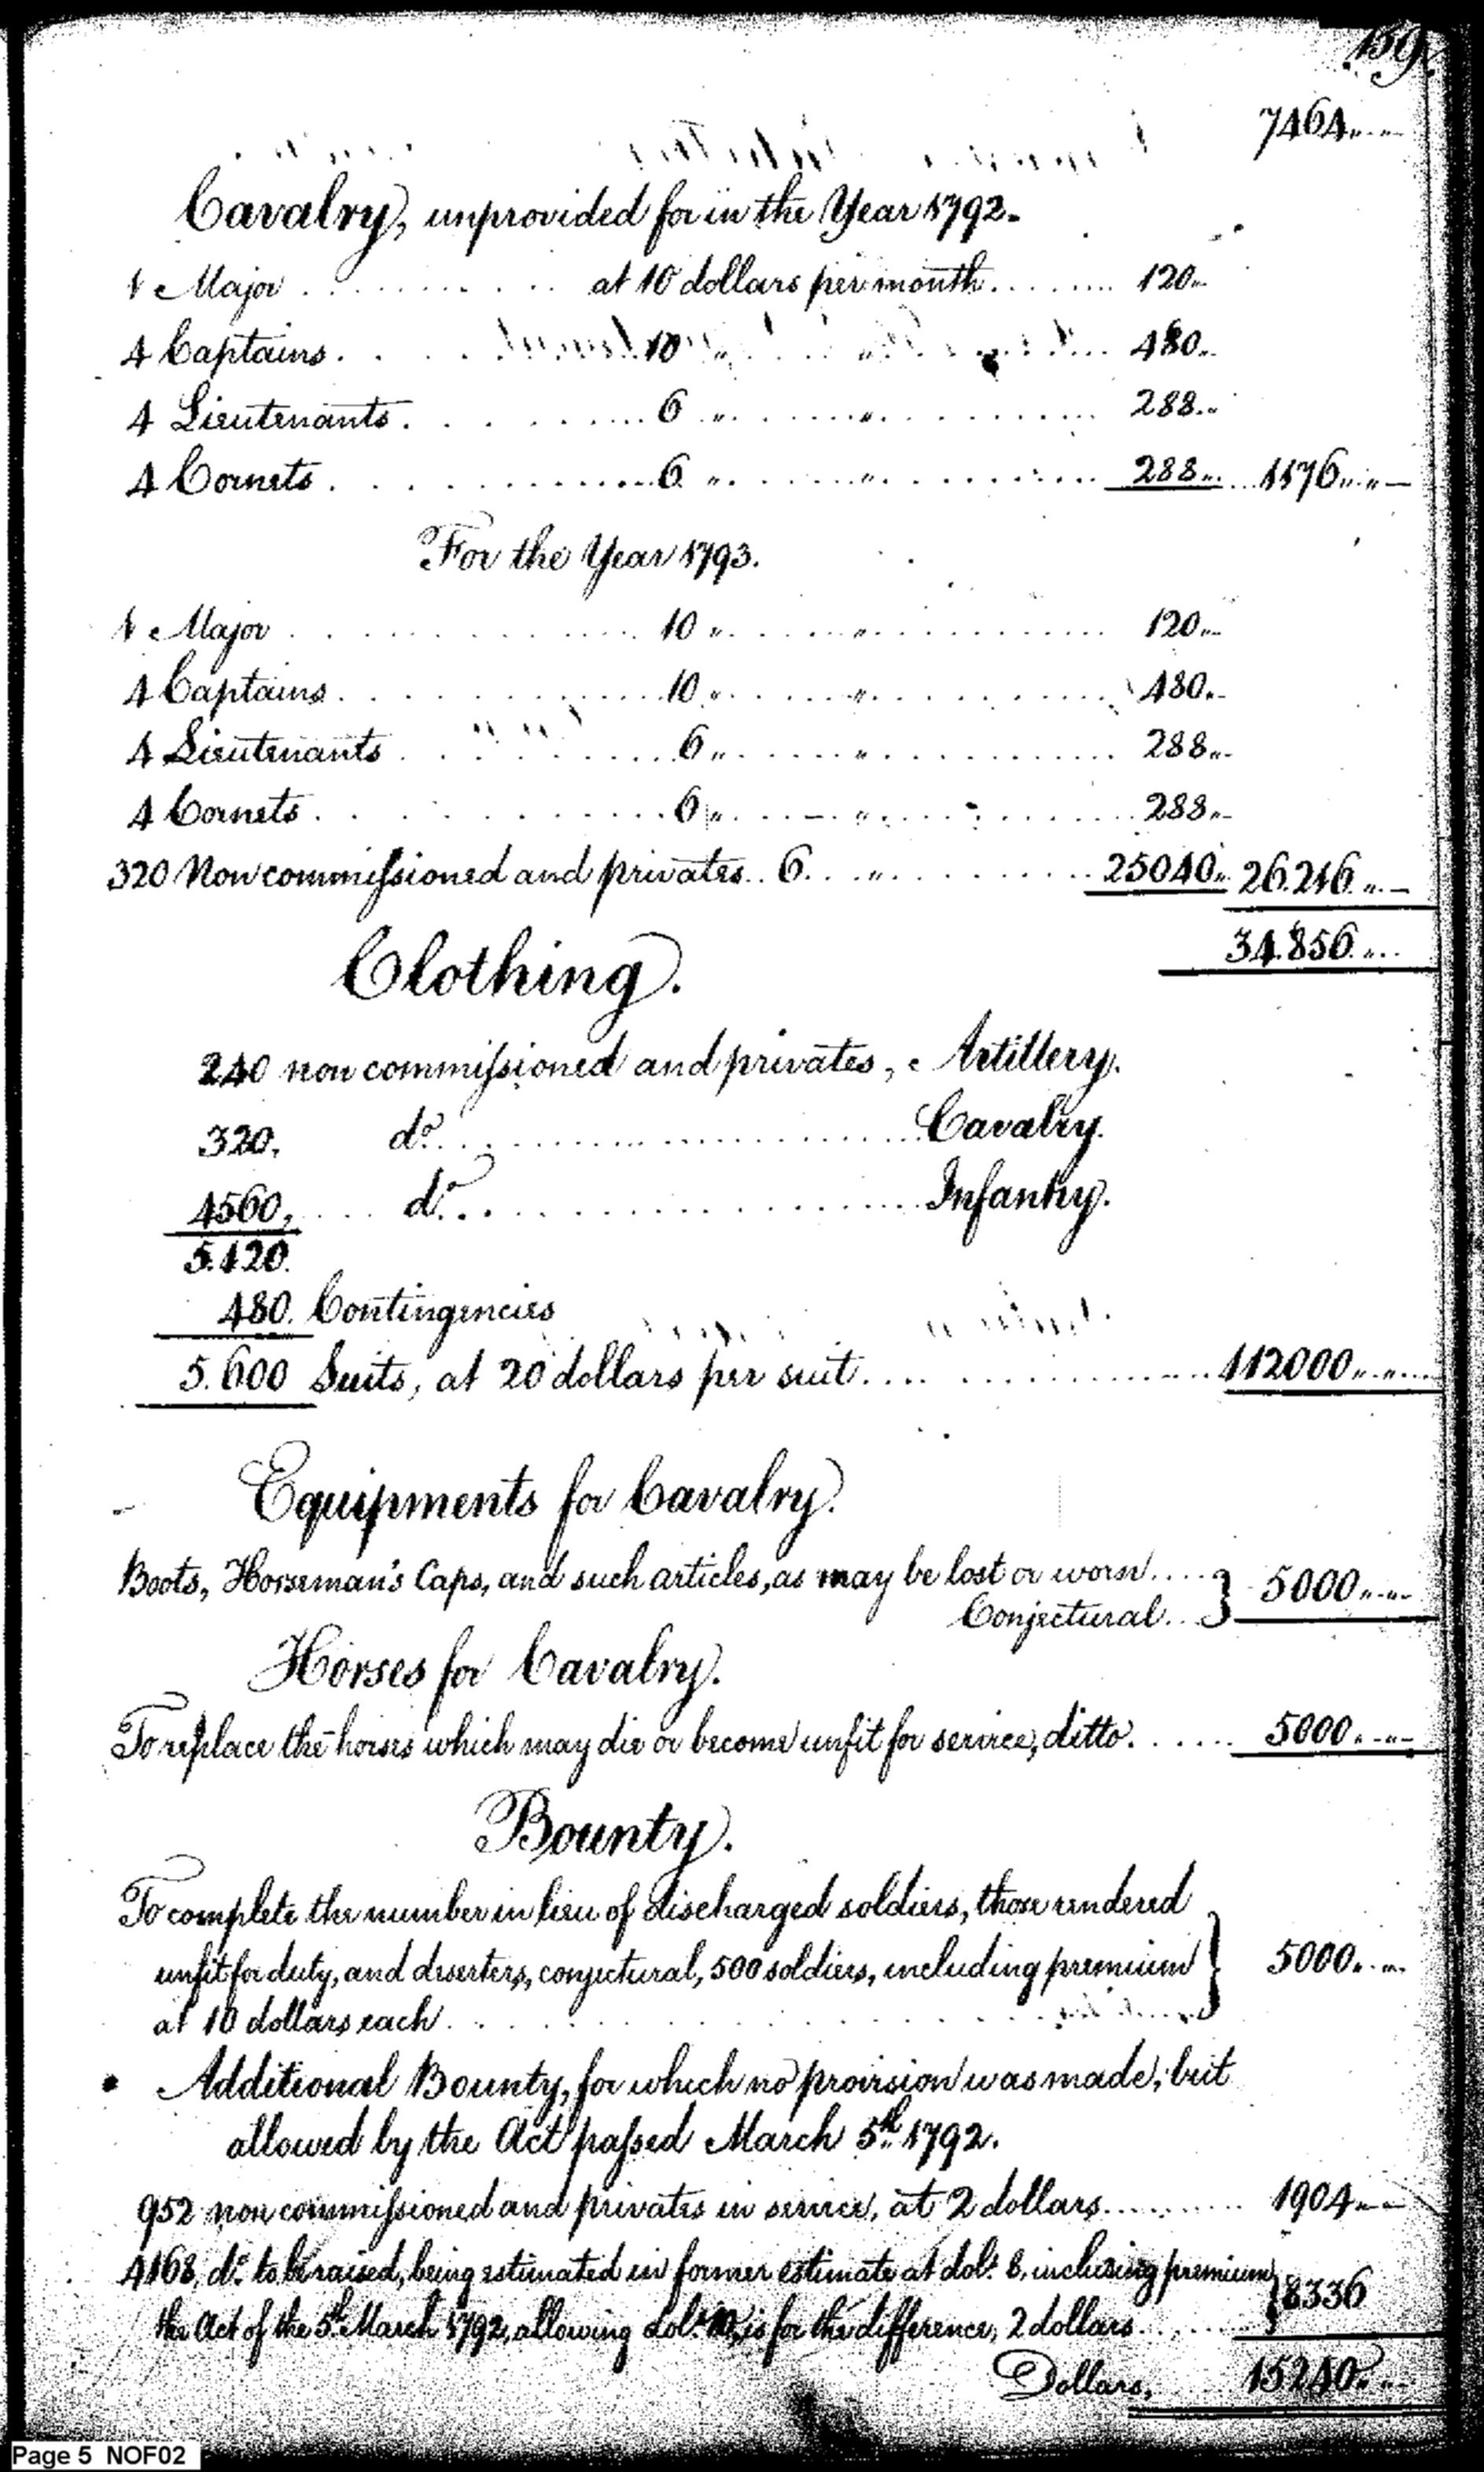 159.
7464..
Cavalry, unprovided for in the Year 1792.
1 Major . . . . . at 10 dollars per month . . . . 120..
4 Captains . . . . 10 " . . . " . . . . 480..
4 Lieutenants . . . . 6 " . . . " . . . . 288..
4 Cornets . . . . 6 " . . . " . . . . 288.. 1176..
For the Year 1793.
1 Major . . . . 10 " . . . " . . . . 120..
4 Captains . . . . 10 " . . . " . . . . 480..
4 Lieutenants . . . . 6 " . . . " . . . . 288..
4 Cornets . . . . 6 " . . . " . . . . 288..
320 Non commissioned and privates.. 6 . . " . . . . 25040.. 26.216..
34.856..
Clothing.
240 non commissioned and privates, Artillery.
320, do. . . . . Cavalry.
4560, . . . do. . . . . Infantry.
5.120.
480. Contingencies
5.600 Suits, at 20 dollars per suit . . . . 112000..
Equipments for Cavalry.
Boots, Horseman's Caps, and such articles, as may be lost or worn . . . } 5000..
Conjectural . .
Horses for Cavalry.
To replace the horses which may die or become unfit for service, ditto . . . . 5000..
Bounty.
To complete the number in lieu of discharged soldiers, those rendered
unfit for duty, and deserters, conjectural, 500 soldiers, including premium } 5000..
at 10 dollars each . . . .
Additional Bounty, for which no provision was made, but
allowed by the Act passed March 5th 1792.
952 non commissioned and privates in service, at 2 dollars . . . . 1904..
4168, do. to be raised, being estimated in former estimate at dols. 8, including premium } 8336
the Act of the 5th March 1792, allowing dols. 10, is for the difference, 2 dollars . . . .
Dollars, . . . 15240..
Page 5 NOF02